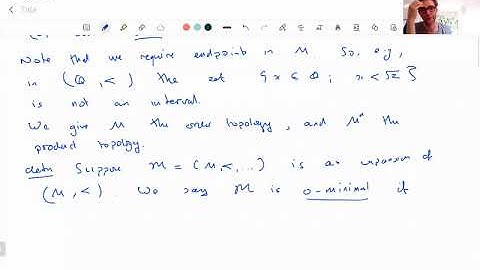 Title
Note that we require endpoints in M. So, e.g,
in (ℚ, <) the set {x ∈ ℚ : x < √2}
is not an interval.
We give M the order topology, and Mⁿ the
product topology.
defn Suppose M = (M, <, ...) is an expansion of
(M, <). We say M is o-minimal if